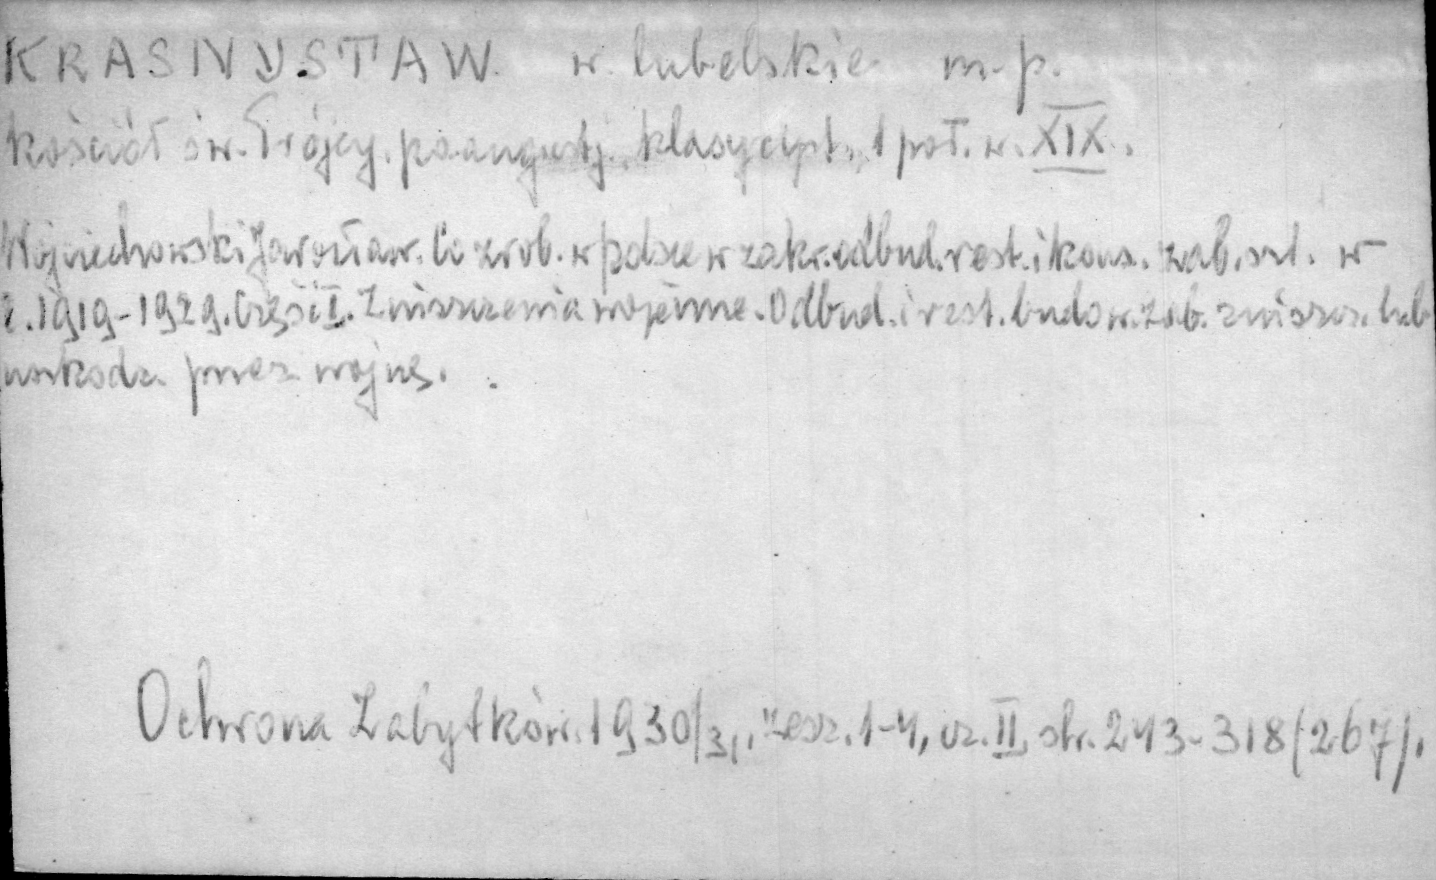 KRASNYSTAW w. lubelskie m. p.
kościół św. Trójcy, poaugustj., klasycyst., 1 poł. w. XIX.
Wojciechowski Jarosław. Co zrob. w Polsce w zakr. odbud. rest. i kons. zab. szt. w
l. 1919-1929. Część II. Zniszczenia wojenne. Odbud. i rest. budow. zab. zniszcz. lub
uszkodz. przez wojnę.
Ochrona Zabytków. 1930/31, zesz. 1-4, cz. II, str. 243-318 (267).